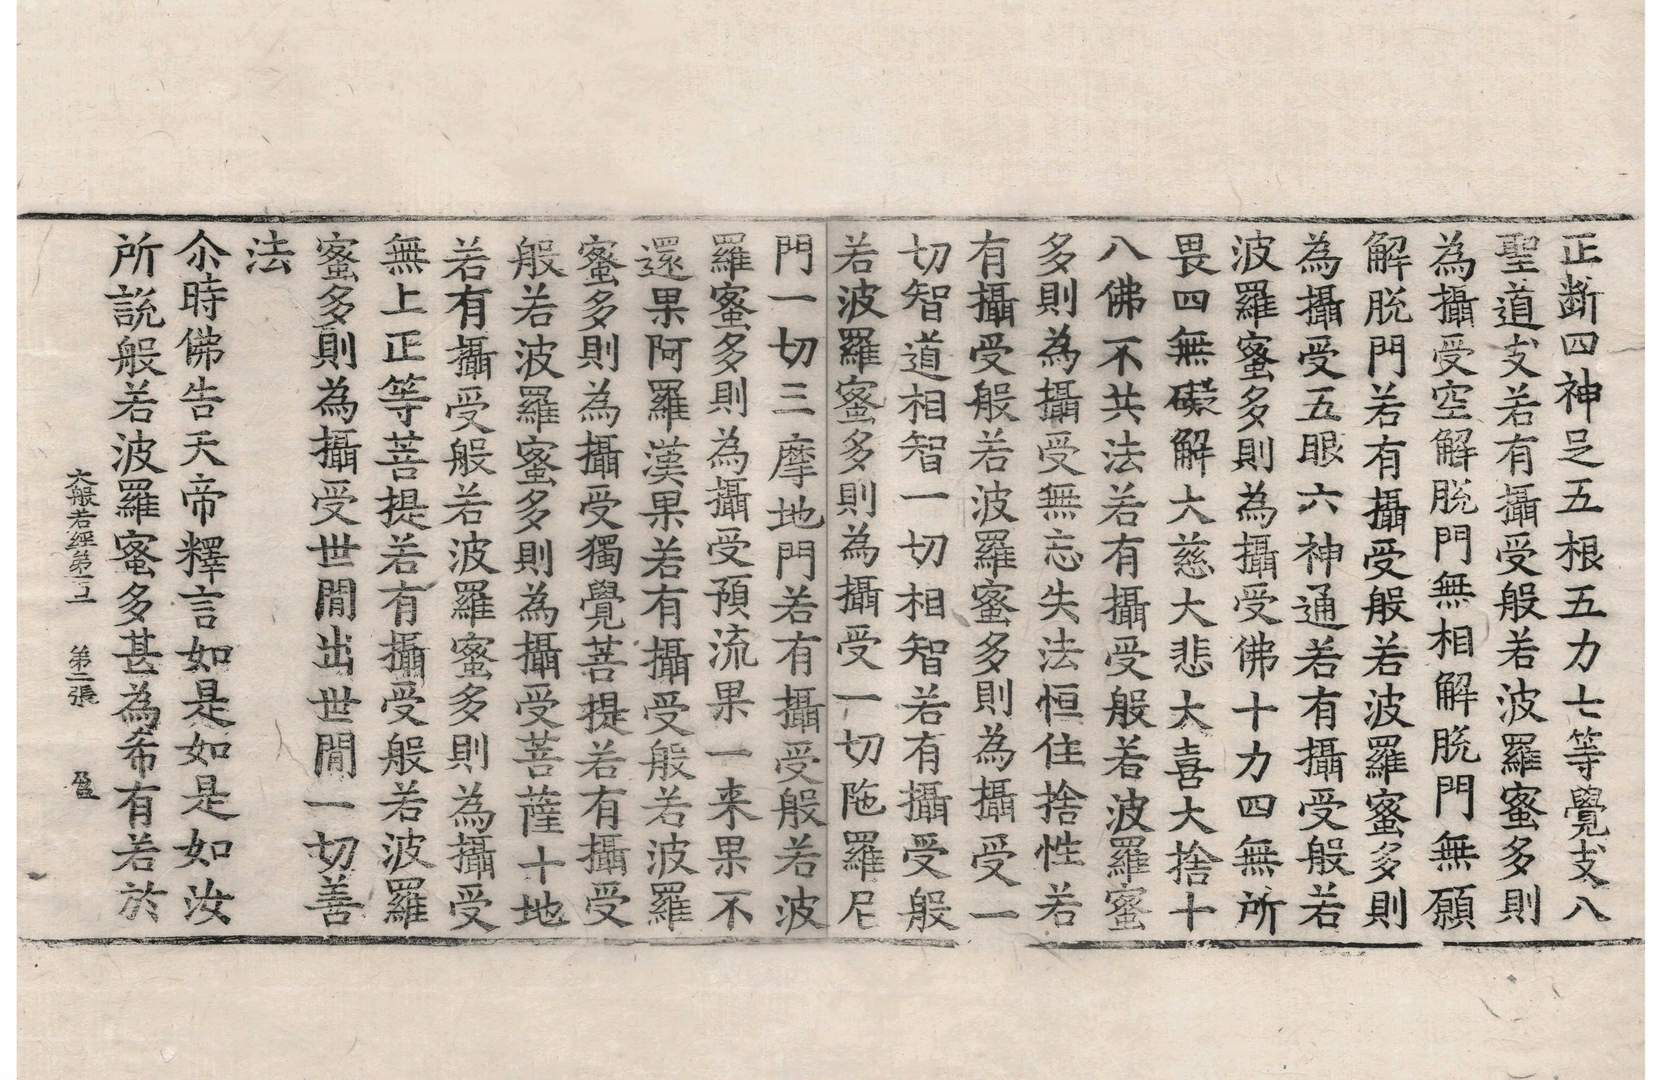 正斷四神足五根五力七等覺支八
聖道支若有攝受般若波羅蜜多則
為攝受空解脫門無相解脫門無願
解脫門若有攝受般若波羅蜜多則
為攝受五眼六神通若有攝受般若
波羅蜜多則為攝受佛十力四無所
畏四無礙解大慈大悲大喜大捨十
八佛不共法若有攝受般若波羅蜜
多則為攝受無忘失法恒住捨性若
有攝受般若波羅蜜多則為攝受一
切智道相智一切相智若有攝受般
若波羅蜜多則為攝受一切陁羅尼
門一切三摩地門若有攝受般若波
羅蜜多則為攝受預流果一来果不
還果阿羅漢果若有攝受般若波羅
蜜多則為攝受獨覺菩提若有攝受
般若波羅蜜多則為攝受菩薩十地
若有攝受般若波羅蜜多則為攝受
無上正等菩提若有攝受般若波羅
蜜多則為攝受世閒出世閒一切善
法
尒時佛告天帝釋言如是如是如汝
所說般若波羅蜜多甚為希有若於
大般若經第一百一　第二張　盈